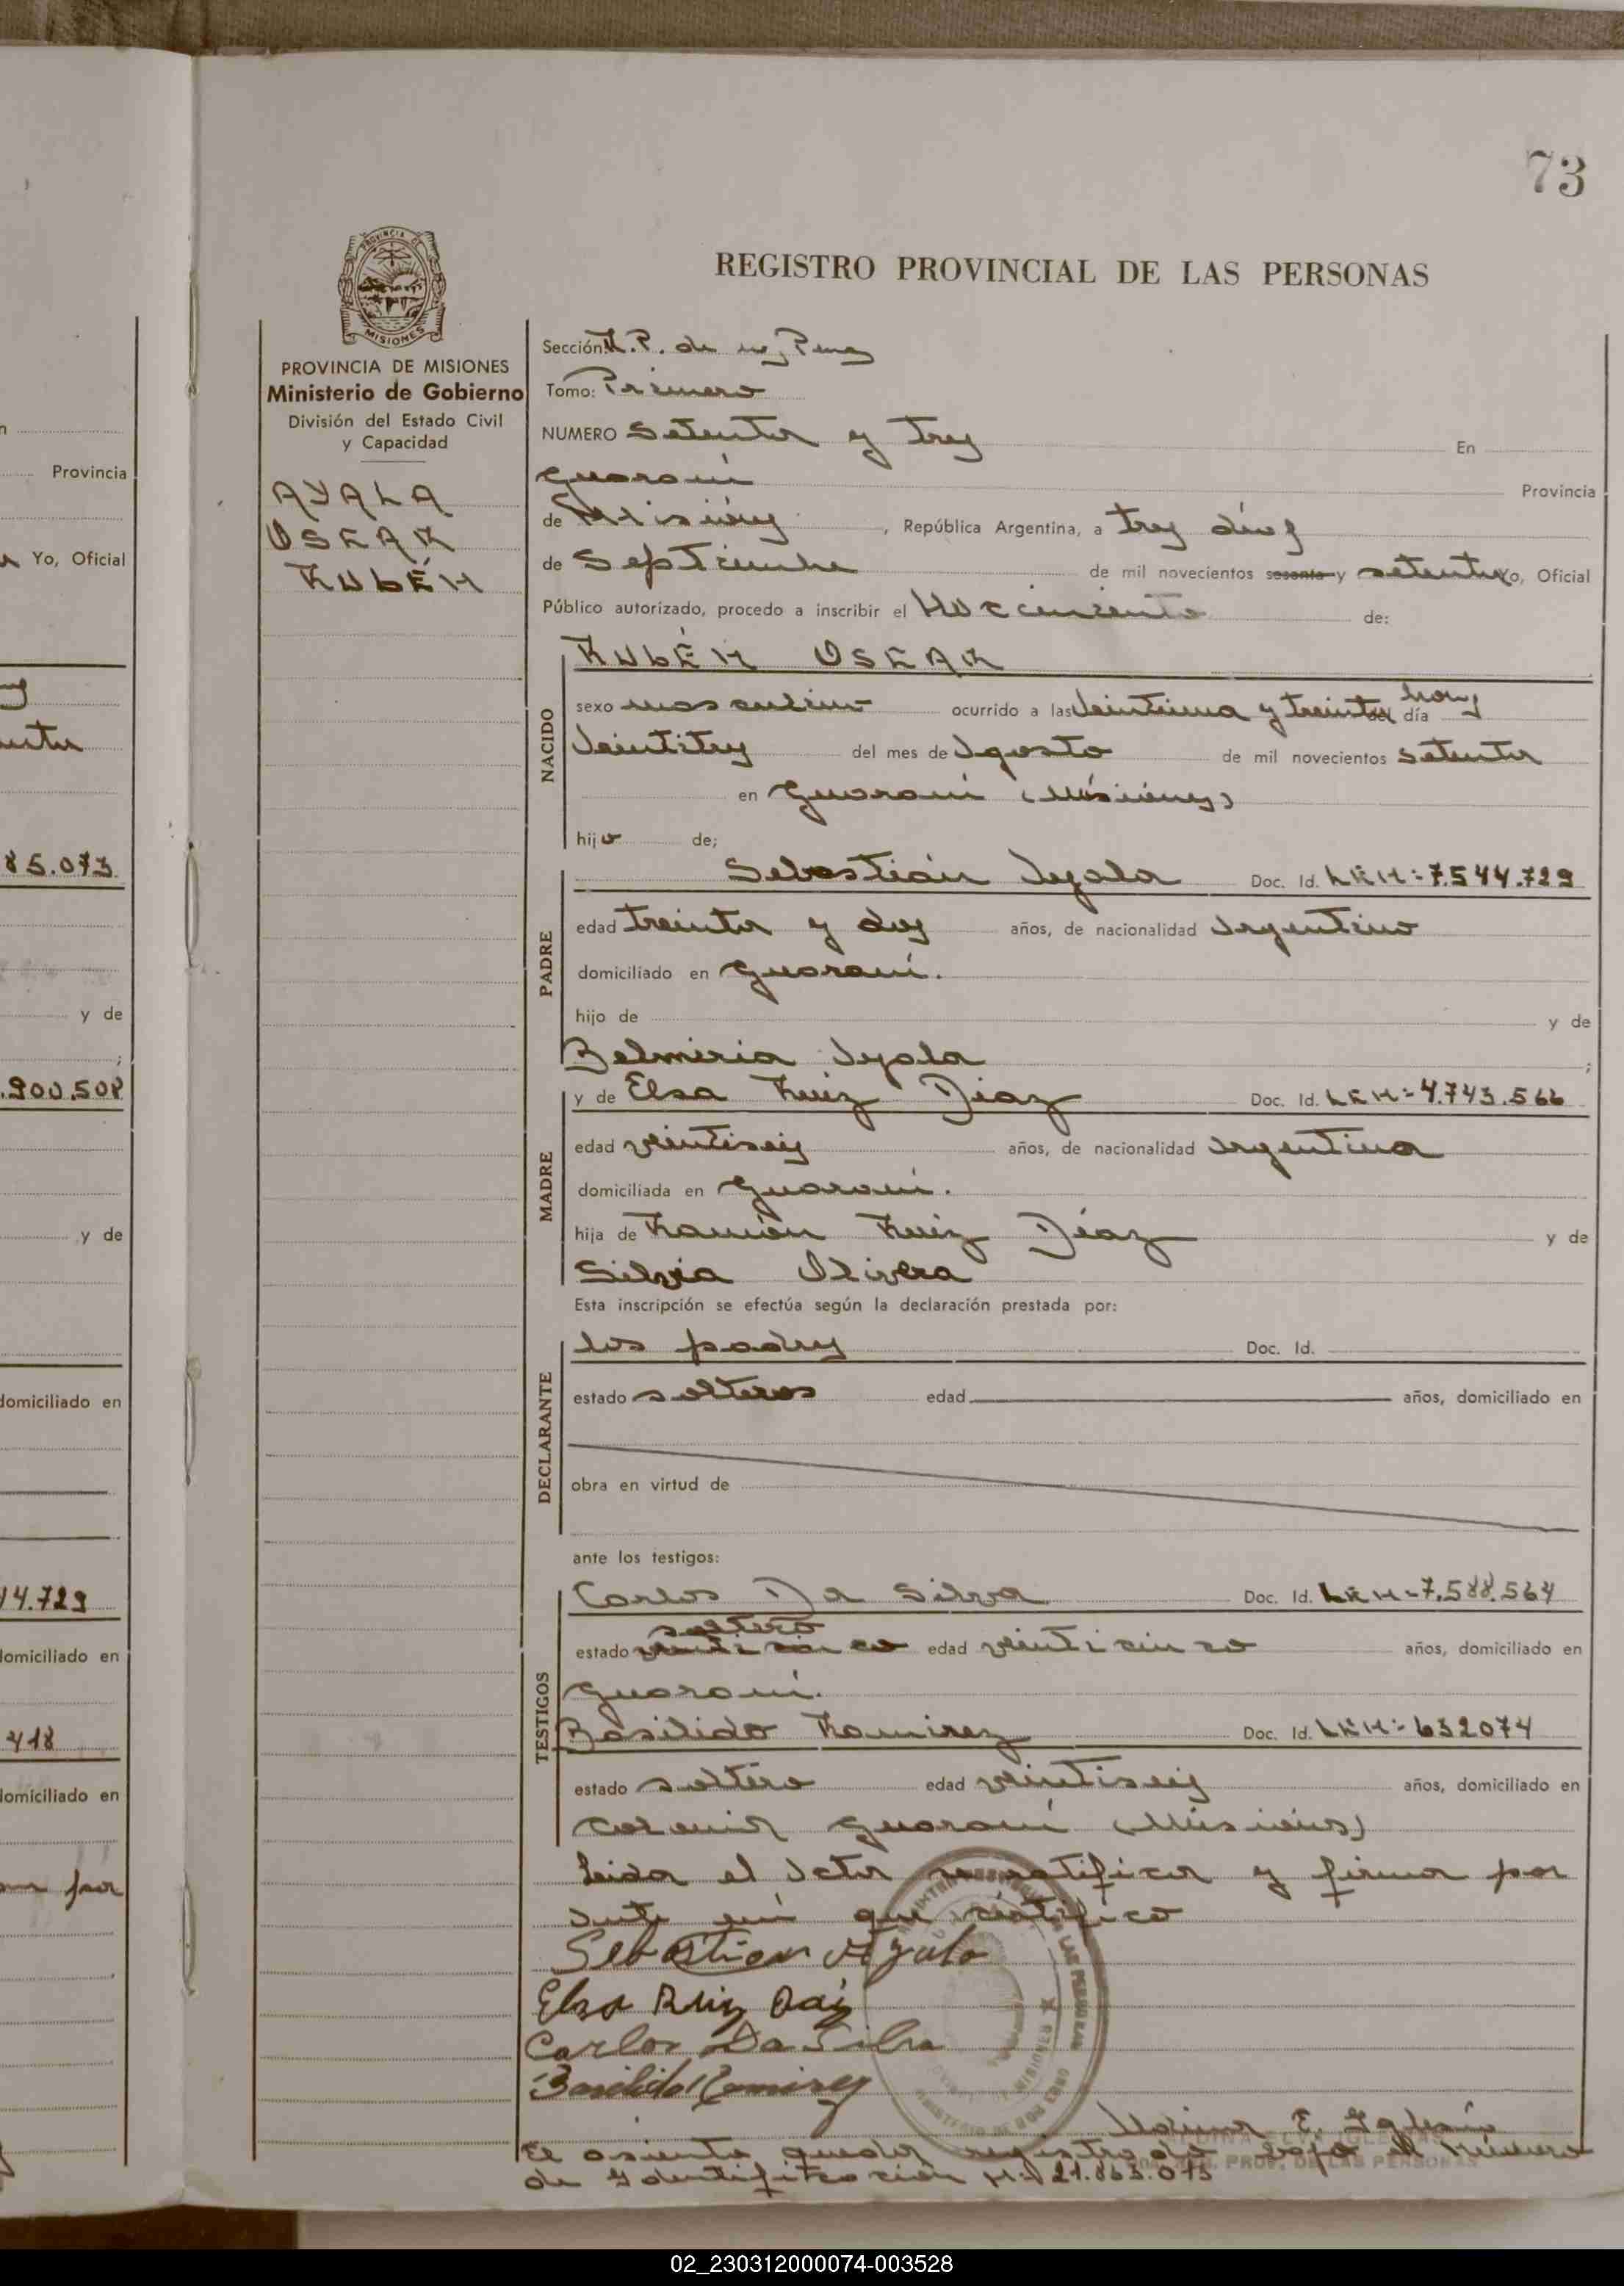 73
REGISTRO PROVINCIAL DE LAS PERSONAS
PROVINCIA DE
MISIONES
PROVINCIA DE MISIONES
Ministerio de Gobierno
División del Estado Civil
y Capacidad
AYALA
OSCAR
RUBÉN
Sección: R.P. de
Tomo: Primero
NUMERO Setenta y tres En
Guaraní Provincia
de Misiones, República Argentina, a tres días
de Septiembre de mil novecientos sesenta y setenta Yo, Oficial
Público autorizado, procedo a inscribir el Nacimiento de:
NACIDO
RUBÉN OSCAR
sexo masculino ocurrido a las Veintiuna y treinta horas del día
Veintitres del mes de Agosto de mil novecientos setenta
en Guaraní (Misiones)
hijo de;
PADRE
Sebastián Ayala Doc. Id. LEN= 7.544.729
edad treinta y dos años, de nacionalidad Argentino
domiciliado en Guaraní.
hijo de y de
Belmiria Ayala ;
MADRE
y de Elsa Ruiz Diaz Doc. Id. LEN= 4.743.566
edad veintiseis años, de nacionalidad Argentina
domiciliada en Guaraní.
hija de Ramón Ruiz Diaz y de
Silvia Olivera
Esta inscripción se efectúa según la declaración prestada por:
DECLARANTE
los padres Doc. Id.
estado solteros edad años, domiciliado en
obra en virtud de
ante los testigos:
TESTIGOS
Carlos Da Silva Doc. Id. LEN=7.588.564
soltero
estado veinticinco edad veinticinco años, domiciliado en
Guaraní.
Basilido Ramirez Doc. Id. LEN= 632074
estado soltero edad veintiseis años, domiciliado en
Colonia Guaraní (Misiones)
Leida el Acta se ratifican y firman por
ante mí que certifico
Sebastian Ayala
Elsa Ruiz Daiz
Carlos Da Silva
Basilido Ramirez
El asiento queda registrado bajo el Número
de Identificación N= 21.863.013
n
Provincia
Yo, Oficial
85.073
y de
.900.508
y de
domiciliado en
44.729
domiciliado en
418
domiciliado en
por
02_230312000074-003528